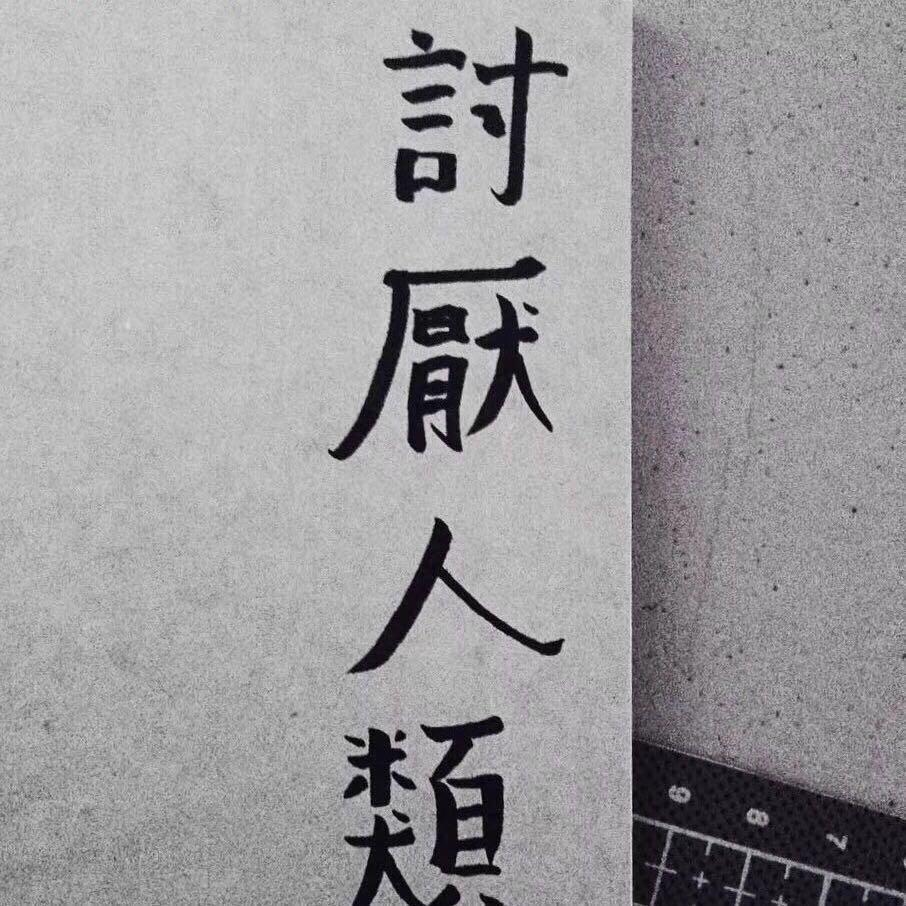 討厭人類
9 8 7